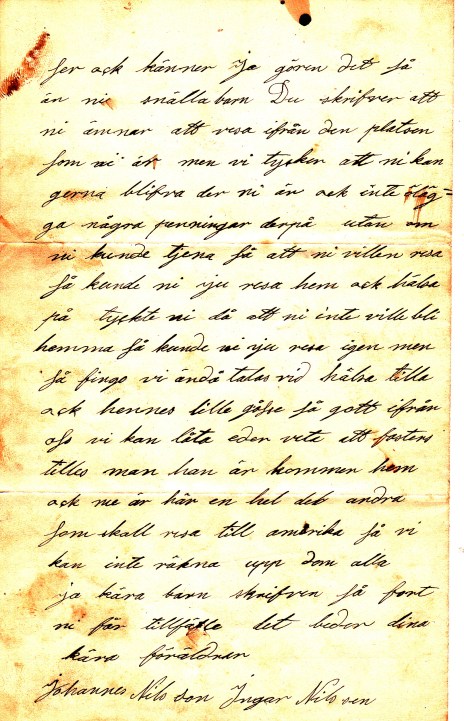 ser ock känner ja gören det så
än nie snälla barn Du skrifver att
ni ämnar att resa ifrån den platsen
som ni är men vi tycker att ni kan
gerna blifva der ni är ock inte
ga några penningar derpå utan om
ni kunde tjena så att ni villen resa
så kunde ni iju resa hem ock hälsa
på tyckte ni då att ni inte ville bli
hemma så kunde ni iju resa igen men
så fingo vi ändå talas vid hälsa tilla
ock hennes lille gåsse så gott ifrån
oss vi kan låta eder veta att fosters
tilles man han är kommen hem
ock nu är här en hel deb andra
som skall resa till amerika så vi
kan inte räkna upp dom alla
ja kära barn skrifven så fort
ni får tillfälle det beder dina
kära föräldrar
Johannes Nils son Ingar Nils sen